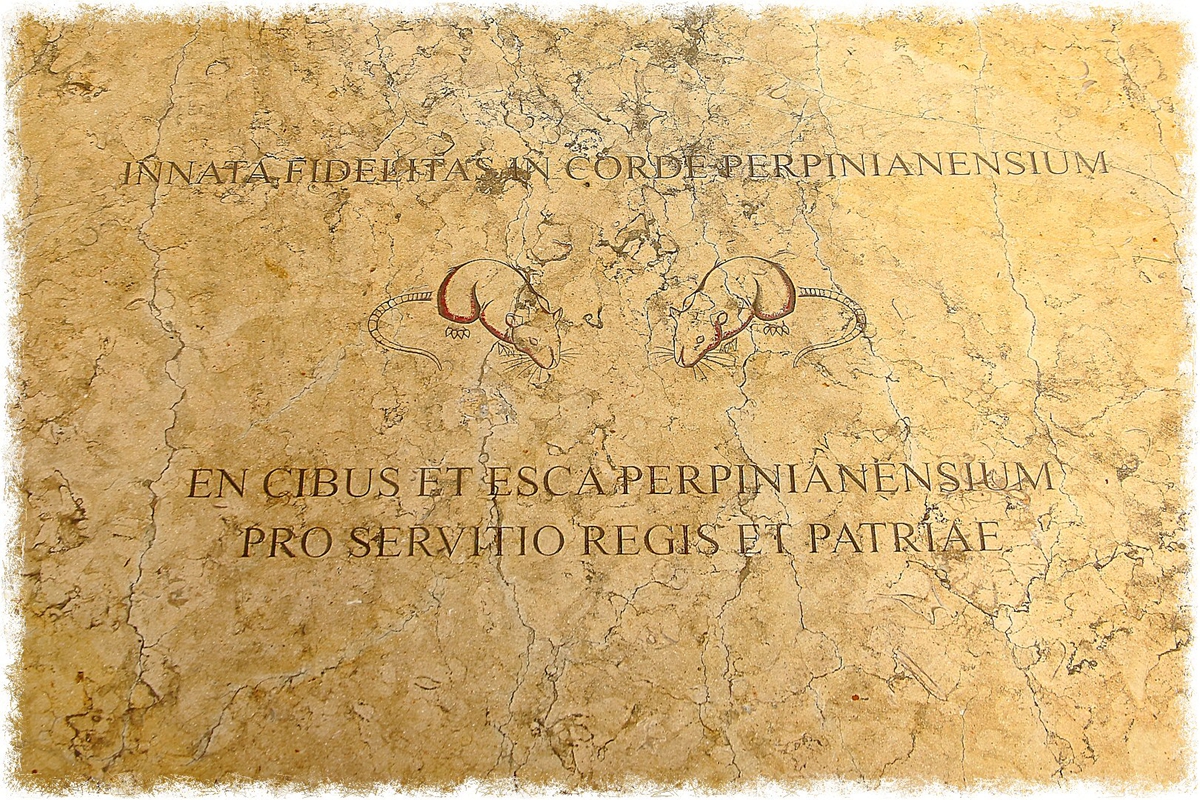 INNATA FIDELITAS IN CORDE PERPINIANENSIUM
EN CIBUS ET ESCA PERPINIANENSIUM
PRO SERVITIO REGIS ET PATRIAE